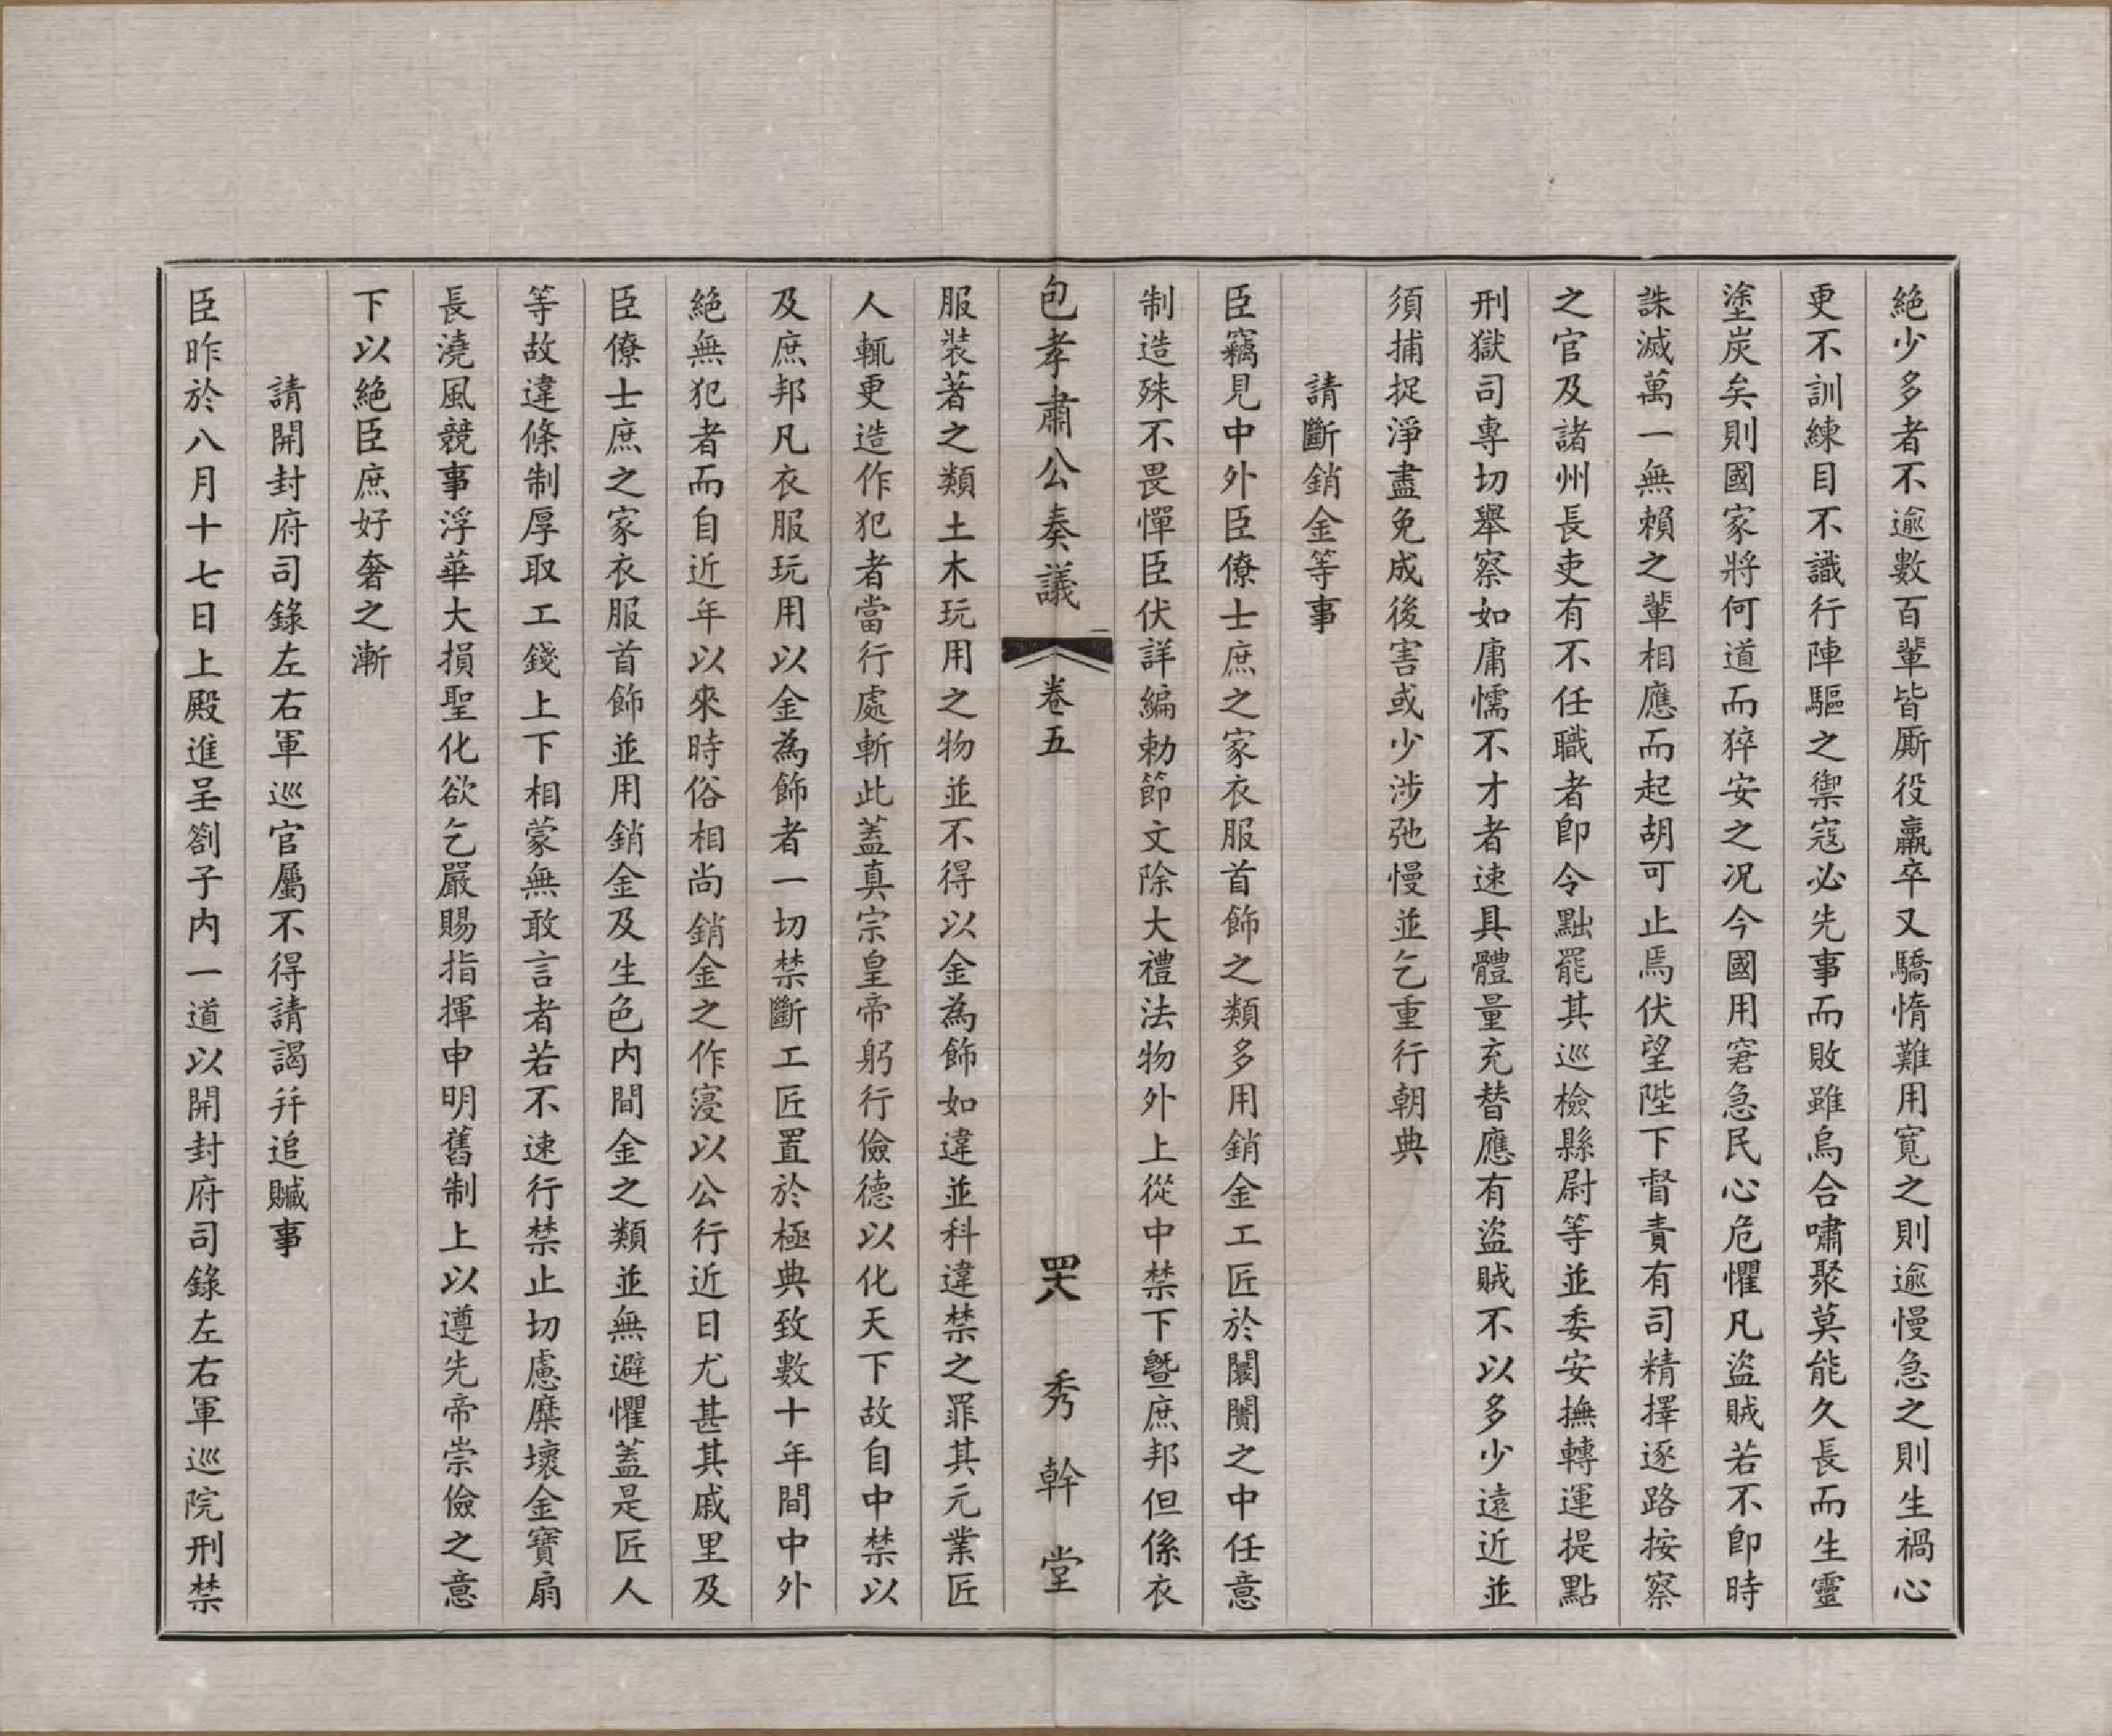 絶少多者不逾數百輩皆厮役羸卒又驕惰難用寬之則逾慢急之則生禍心
更不訓練目不識行陣驅之禦寇必先事而敗雖烏合嘯聚莫能久長而生靈
塗炭矣則國家將何道而猝安之况今國用窘急民心危懼凡盜賊若不卽時
誅滅萬一無賴之輩相應而起胡可止焉伏望陛下督責有司精擇逐路按察
之官及諸州長吏有不任職者卽令黜罷其巡檢縣尉等並委安撫轉運提點
刑獄司專切舉察如庸懦不才者速具體量充替應有盜賊不以多少遠近並
須捕捉淨盡免成後害或少涉弛慢並乞重行朝典
請斷銷金等事
臣竊見中外臣僚士庶之家衣服首飾之類多用銷金工匠於闤闠之中任意
制造殊不畏憚臣伏詳編勅節文除大禮法物外上從中禁下曁庶邦但係衣
包孝肅公奏議
一
卷五
罘
秀幹堂
服裝著之類土木玩用之物並不得以金為飾如違並科違禁之罪其元業匠
人輒更造作犯者當行處斬此蓋真宗皇帝躬行儉德以化天下故自中禁以
及庶邦凡衣服玩用以金為飾者一切禁斷工匠置於極典致數十年間中外
絶無犯者而自近年以來時俗相尚銷金之作寖以公行近日尤甚其戚里及
臣僚士庶之家衣服首飾並用銷金及生色內間金之類並無避懼蓋是匠人
等故違條制厚取工錢上下相蒙無敢言者若不速行禁止切慮糜壞金寶扇
長澆風競事浮華大損聖化欲乞嚴賜指揮申明舊制上以遵先帝崇儉之意
下以絶臣庶好奢之漸
請開封府司錄左右軍巡官屬不得請謁幷追贓事
臣昨於八月十七日上殿進呈劄子內一道以開封府司錄左右軍巡院刑禁